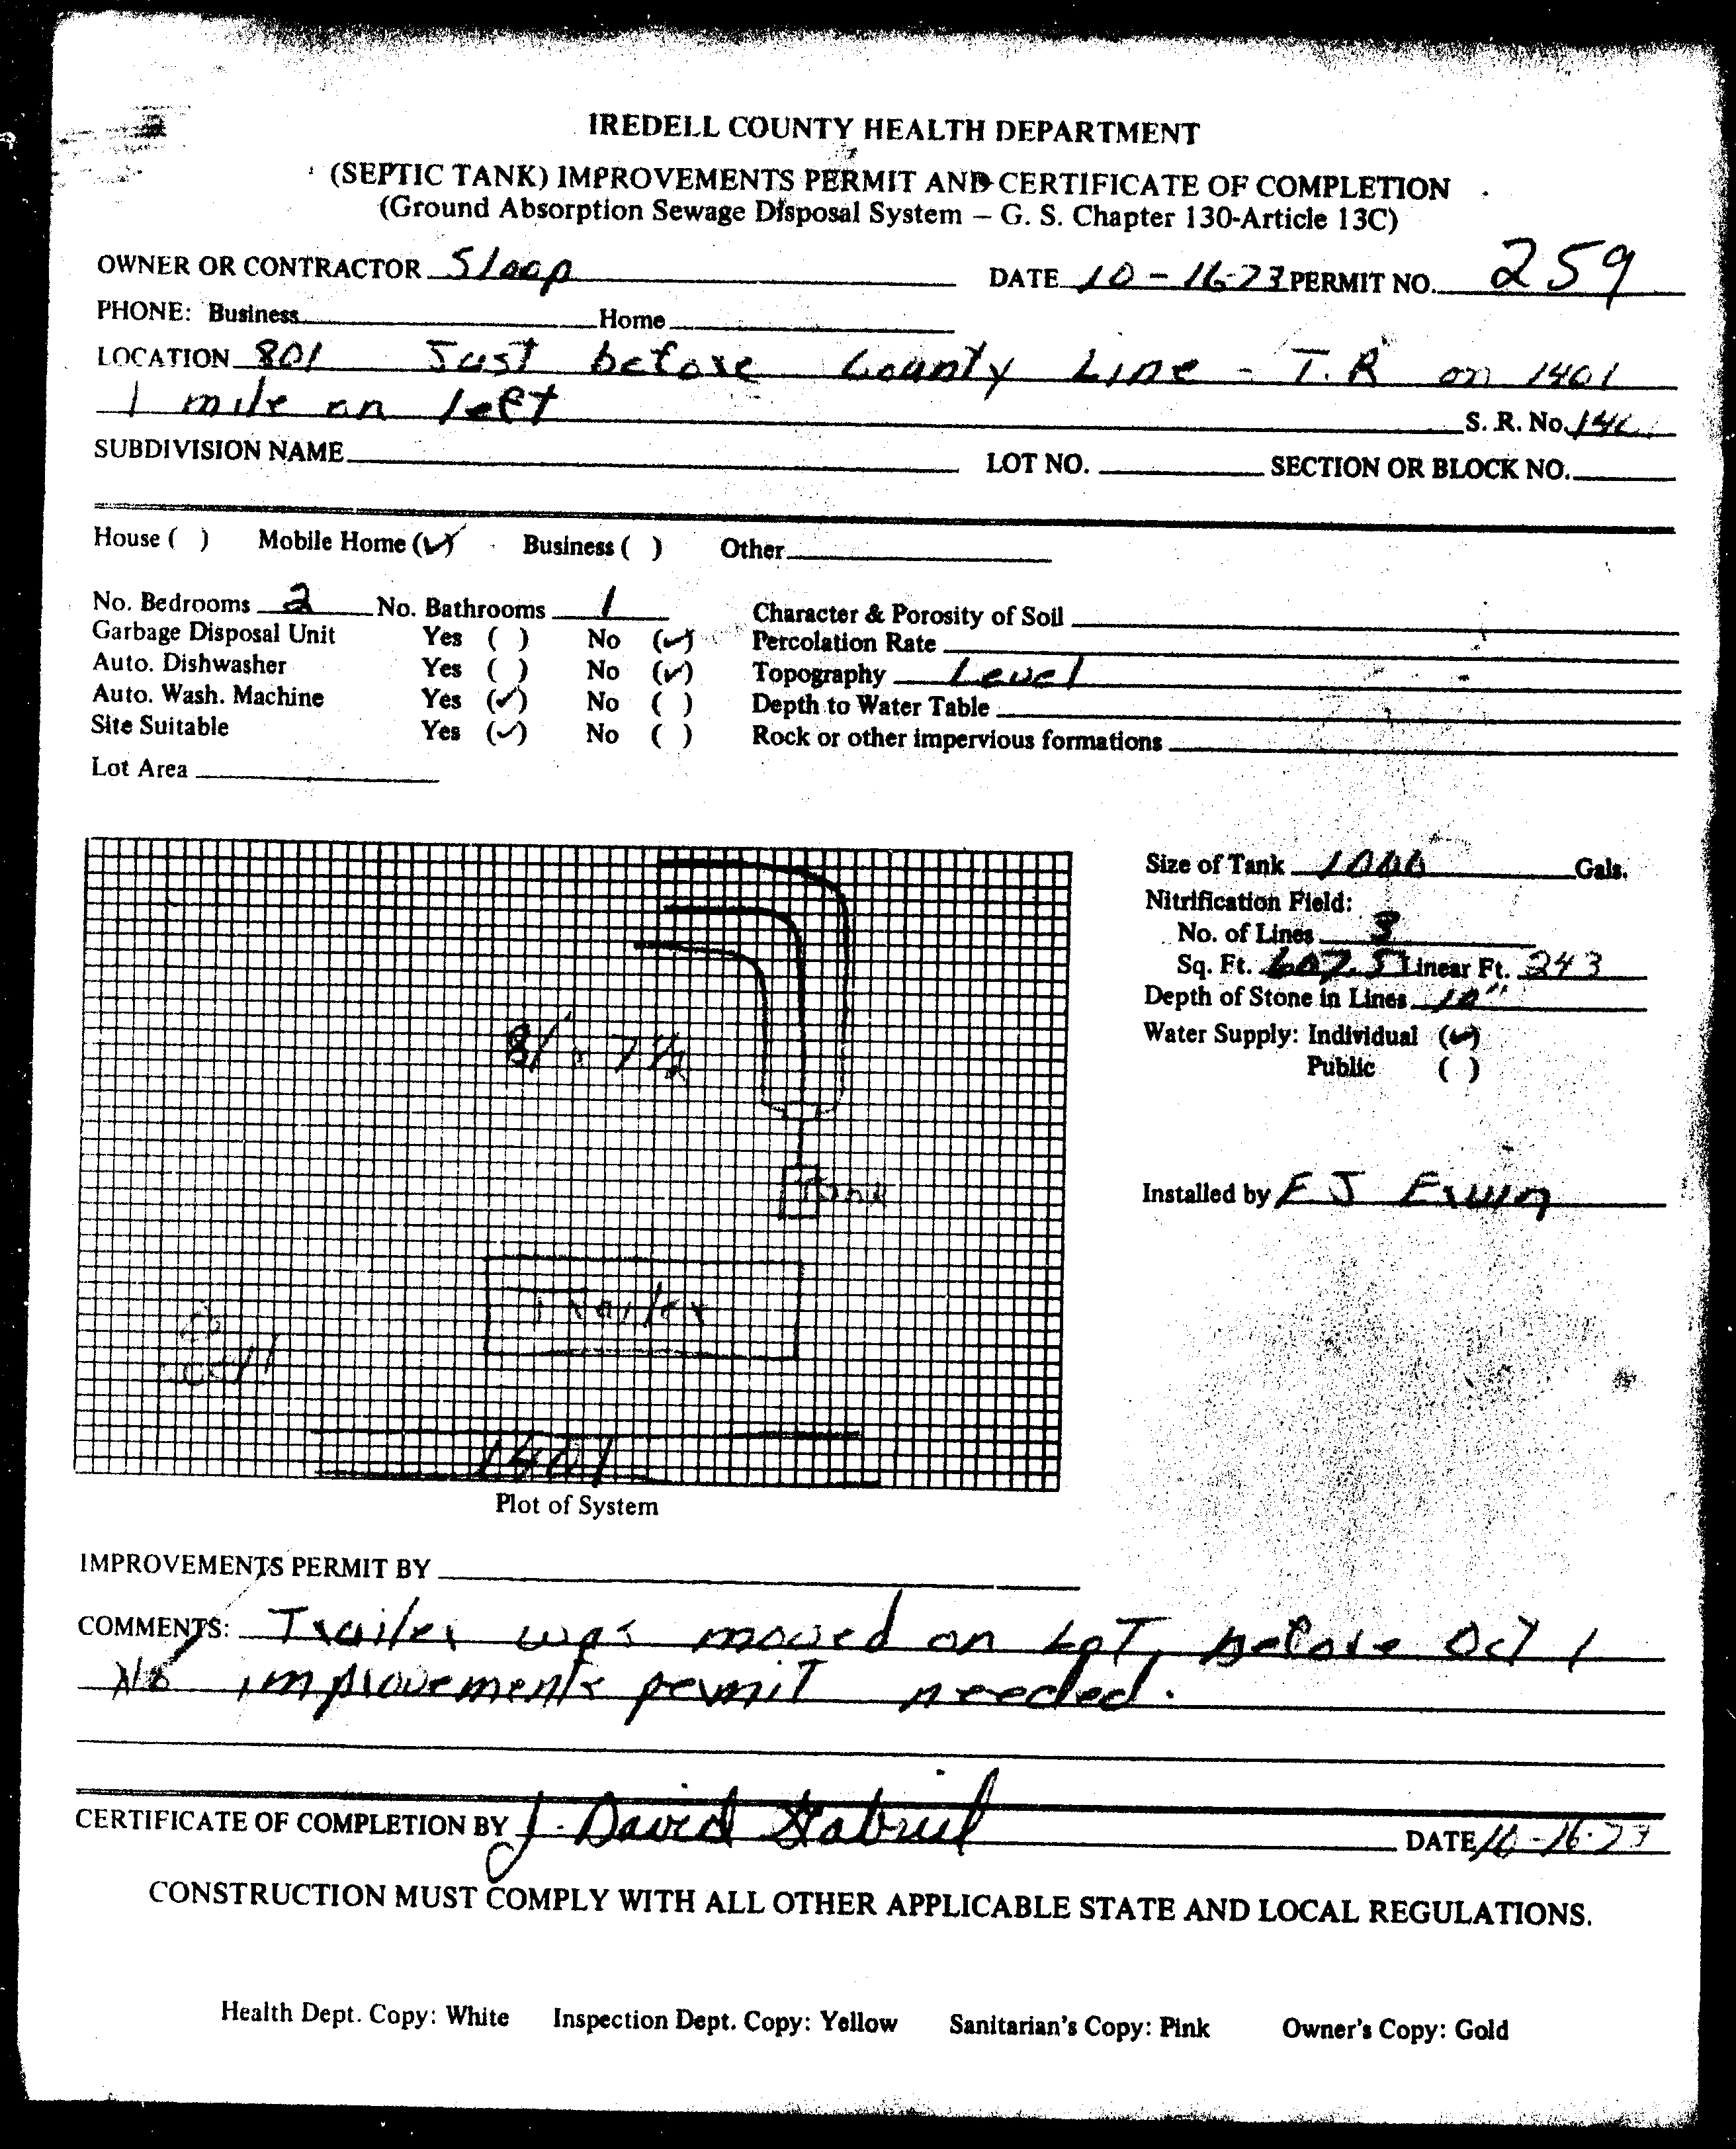 IREDELL COUNTY HEALTH DEPARTMENT
(SEPTIC TANK) IMPROVEMENTS PERMIT AND CERTIFICATE OF COMPLETION
(Ground Absorption Sewage Disposal System — G. S. Chapter 130-Article 13C)
OWNER OR CONTRACTOR Sloop DATE 10-16-73 PERMIT NO. 259
PHONE: Business Home
LOCATION 801 Just before County Line - T.R on 1401
1 mile on left S. R. No.
SUBDIVISION NAME LOT NO. SECTION OR BLOCK NO.
House ( ) Mobile Home (✓) Business ( ) Other
No. Bedrooms 2 No. Bathrooms 1 Character & Porosity of Soil
Garbage Disposal Unit Yes ( ) No (✓) Percolation Rate
Auto. Dishwasher Yes ( ) No (✓) Topography Level
Auto. Wash. Machine Yes (✓) No ( ) Depth to Water Table
Site Suitable Yes (✓) No ( ) Rock or other impervious formations
Lot Area
Size of Tank 1000 Gals.
Nitrification Field:
No. of Lines 3
Sq. Ft. 607.5 Linear Ft. 243
Depth of Stone in Lines 10"
81' x 7 1/2
Water Supply: Individual (✓)
Public ( )
Tank
Installed by E J Erwin
Trailer
1401
Plot of System
IMPROVEMENTS PERMIT BY
COMMENTS: Trailer was moved on LoT, before Oct 1
No improvements permit needed.
CERTIFICATE OF COMPLETION BY J. David Gabriel DATE 10-16-73
CONSTRUCTION MUST COMPLY WITH ALL OTHER APPLICABLE STATE AND LOCAL REGULATIONS.
Health Dept. Copy: White Inspection Dept. Copy: Yellow Sanitarian's Copy: Pink Owner's Copy: Gold